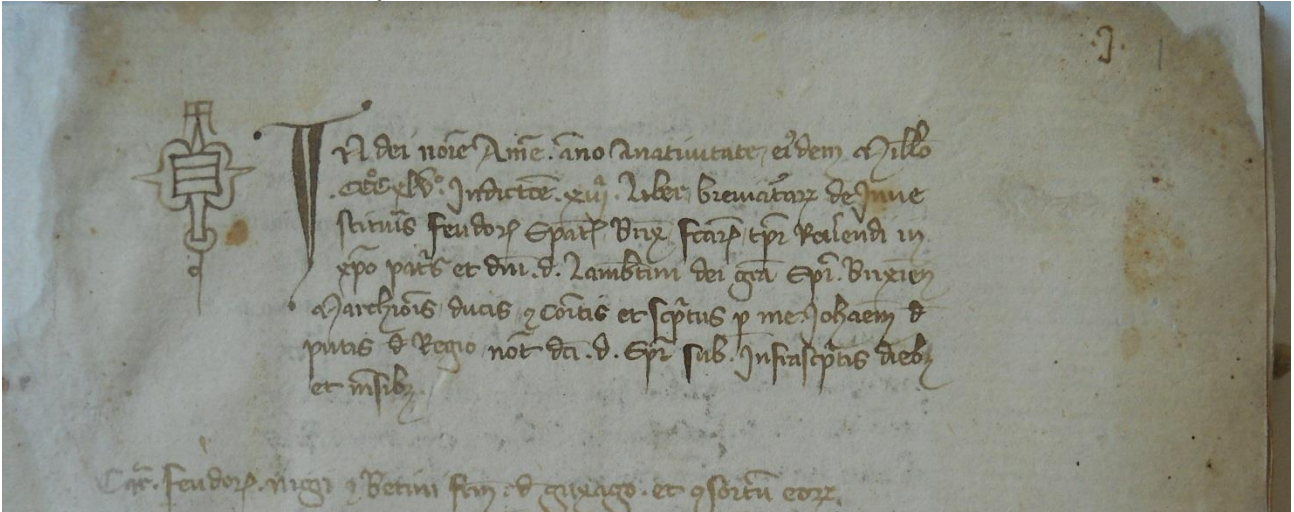 .J.
IN dei noīe Amē. āno Anatiuitate eiꝰdem Mill̄o
.CCC°xlv°. Indictōe. xiijᵃ. Liber breuiatoꝝ de Inue
stituris feudoꝝ Epatꝰ Brix̄ fc̄aꝝ tp̄r Reuēendi in
xp̄o patꝛs et dn̄i .d. Lamb̄tini dei gr̄a Ep̄i. Brixiēn
Marchiōis ducis ⁊ Coītis et scp̄tus p me Johaēm đ
đ Regio not̄ dc̄i .d. Ep̄i sub. Infrascp̄tis diebꝫ
et m̄sibꝫ.
feudoꝝ. ⁊ Betini đ guxago. et ꝯsortū eoꝝ.